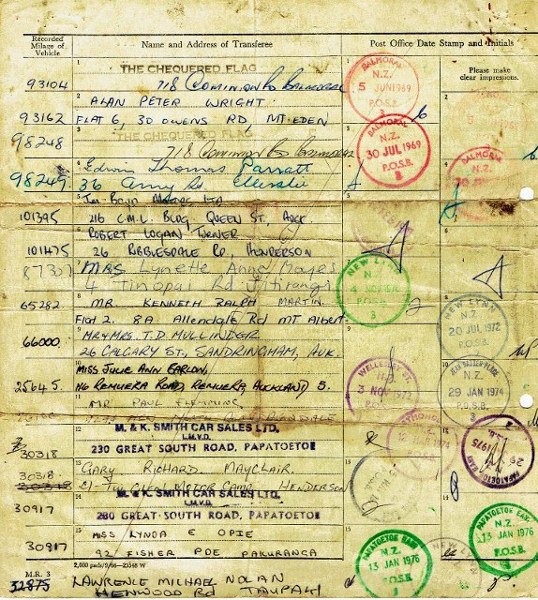 Recorded Milage of Vehicle
Name and Address of Transferee
Post Office Date Stamp and Initials
Please make clear impressions.
THE CHEQUERED FLAG
93104 718 Dominion Rd Balmoral
ALAN PETER WRIGHT
93162 FLAT 6, 30 OWENS RD MT. EDEN
THE CHEQUERED FLAG
98248 718 Dominion Rd Balmoral
Edwin Thomas Parratt
98249 36 Rd. Ellerslie
LTD
101395 216 C.M.L. BLDG, QUEEN ST, AUCK.
ROBERT LOGAN TURNER
101475 26 RIBBLESDALE RD, HENDERSON
87307 MRS Lynette Anne Hayes
4 Tinopai Rd Titirangi
65282 MR. KENNETH RALPH MARTIN.
Flat 2. 8A Allendale Rd MT Albert
MR & MRS. T.D. MULLINDER
66000 26 CALGARY ST., SANDRINGHAM, AUK.
MISS JULIE ANN
25645 116 REMUERA ROAD, REMUERA, AUCKLAND 5.
MR PAUL FLEMMING
M. & K. SMITH CAR SALES LTD.
L.M.V.D.
30318 230 GREAT SOUTH ROAD, PAPATOETOE
GARY RICHARD MAYCLAIR.
30318 MOTOR CAMP HENDERSON
M. & K. SMITH CAR SALES LTD.
L.M.V.D.
30917 230 GREAT SOUTH ROAD, PAPATOETOE
MISS LYNDA E OPIE
30917 92 FISHER PDE PAKURANGA
M.R. 3
32875 LAWRENCE MICHAEL NOLAN
HENWOOD RD TAUPAKI
BALMORAL
N.Z.
5 JUN 1969
P.O.S.B.
BALMORAL
N.Z.
30 JUL 1969
P.O.S.B.
3
BALMORAL
N.Z.
NEW LYNN
N.Z.
3
NEW LYNN
N.Z.
20 JUL 1972
P.O.S.B.
WELLESLEY ST.
3 NOV 1972
P.O.S.B.
N.Z.
29 JAN 1974
P.O.S.B.
1975
PAPATOETOE EAST
N.Z.
13 JAN 1976
P.O.S.B.
PAPATOETOE EAST
N.Z.
13 JAN 1976
P.O.S.B.